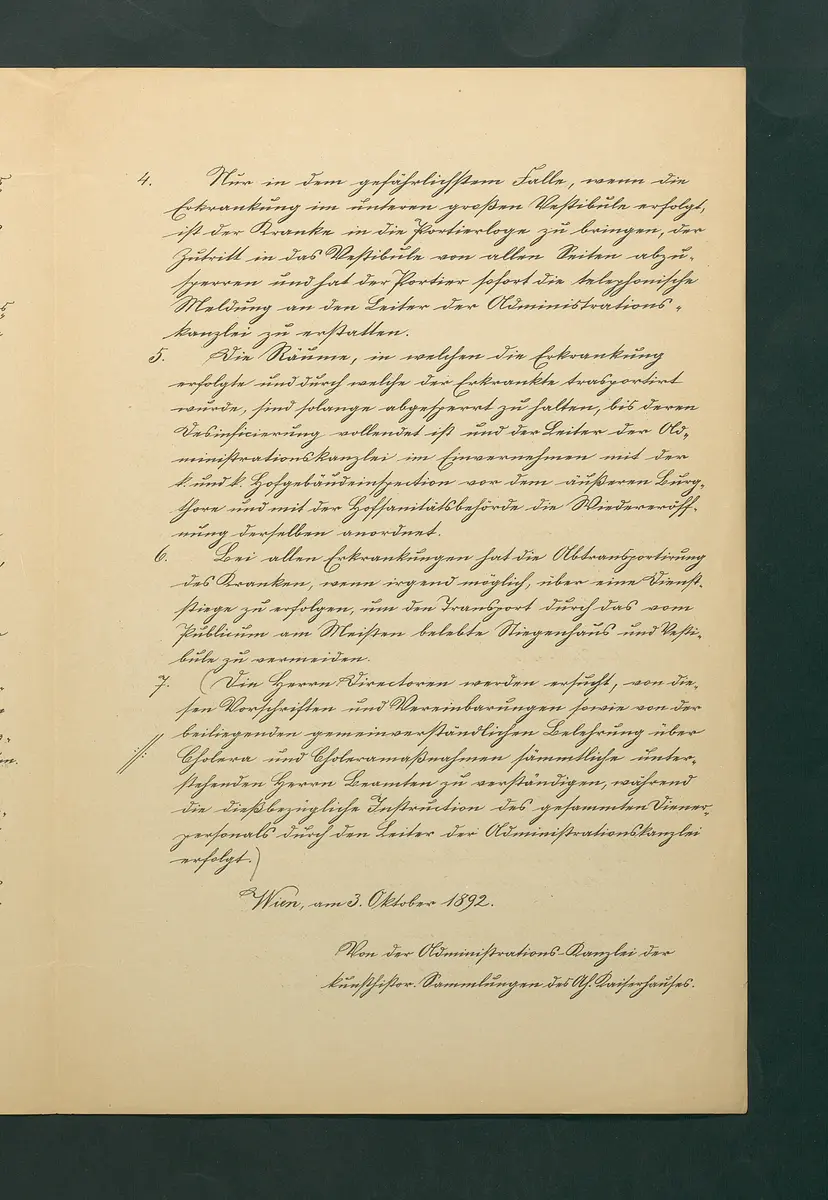 4. Nur in dem gefährlichstem Falle, wenn die
Erkrankung im unteren großen Vestibule erfolgt,
ist der Kranke in die Portierloge zu bringen, der
Zutritt in das Vestibule von allen Seiten abzu-
sperren und hat der Portier sofort die telephonische
Meldung an den Leiter der Administrations-
kanzlei zu erstatten.
5. Die Räume, in welchen die Erkrankung
erfolgte und durch welche der Erkrankte trasportirt
wurde, sind solange abgesperrt zu halten, bis deren
Desinficierung vollendet ist und der Leiter der Ad-
ministrationskanzlei im Einvernehmen mit der
k. und k. Hofgebäudeinspection vor dem äußeren Burg-
thore und mit der Hofsanitätsbehörde die Wiedereröff-
nung derselben anordnet.
6. Bei allen Erkrankungen hat die Abtransportirung
des Kranken, wenn irgend möglich, über eine Dienst-
stiege zu erfolgen, um den Transport durch das vom
Publicum am Meisten belebte Stiegenhaus und Vesti-
bule zu vermeiden.
7. (Die Herrn Directoren werden ersucht, von die-
sen Vorschriften und Vereinbarungen sowie von der
beiliegenden gemeinverständlichen Belehrung über
Cholera und Choleramaßnahmen sämmtliche unter-
stehenden Herrn Beamten zu verständigen, während
die dießbezügliche Instruction des gesammten Diener-
personals durch den Leiter der Administrationskanzlei
erfolgt.)
Wien, am 3. Oktober 1892.
Von der Administrations-Kanzlei der
kunsthistor. Sammlungen des Ah. Kaiserhauses.